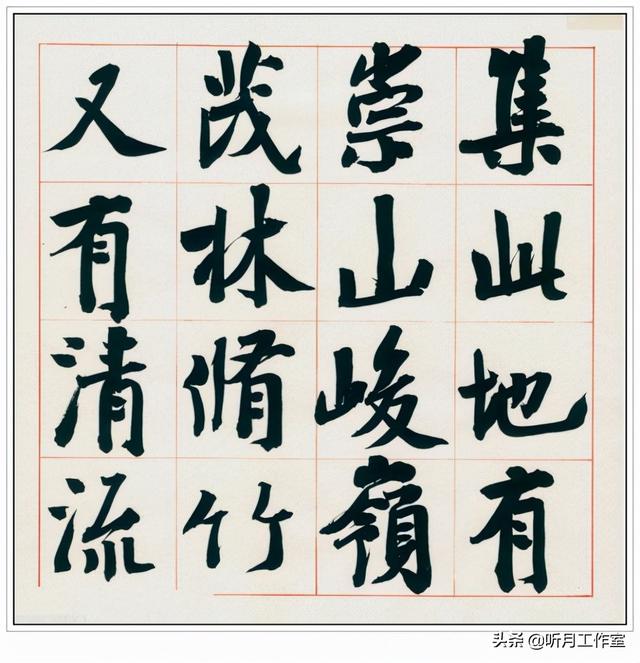 集此地有
崇山峻嶺
茂林脩竹
又有清流
头条 @听月工作室